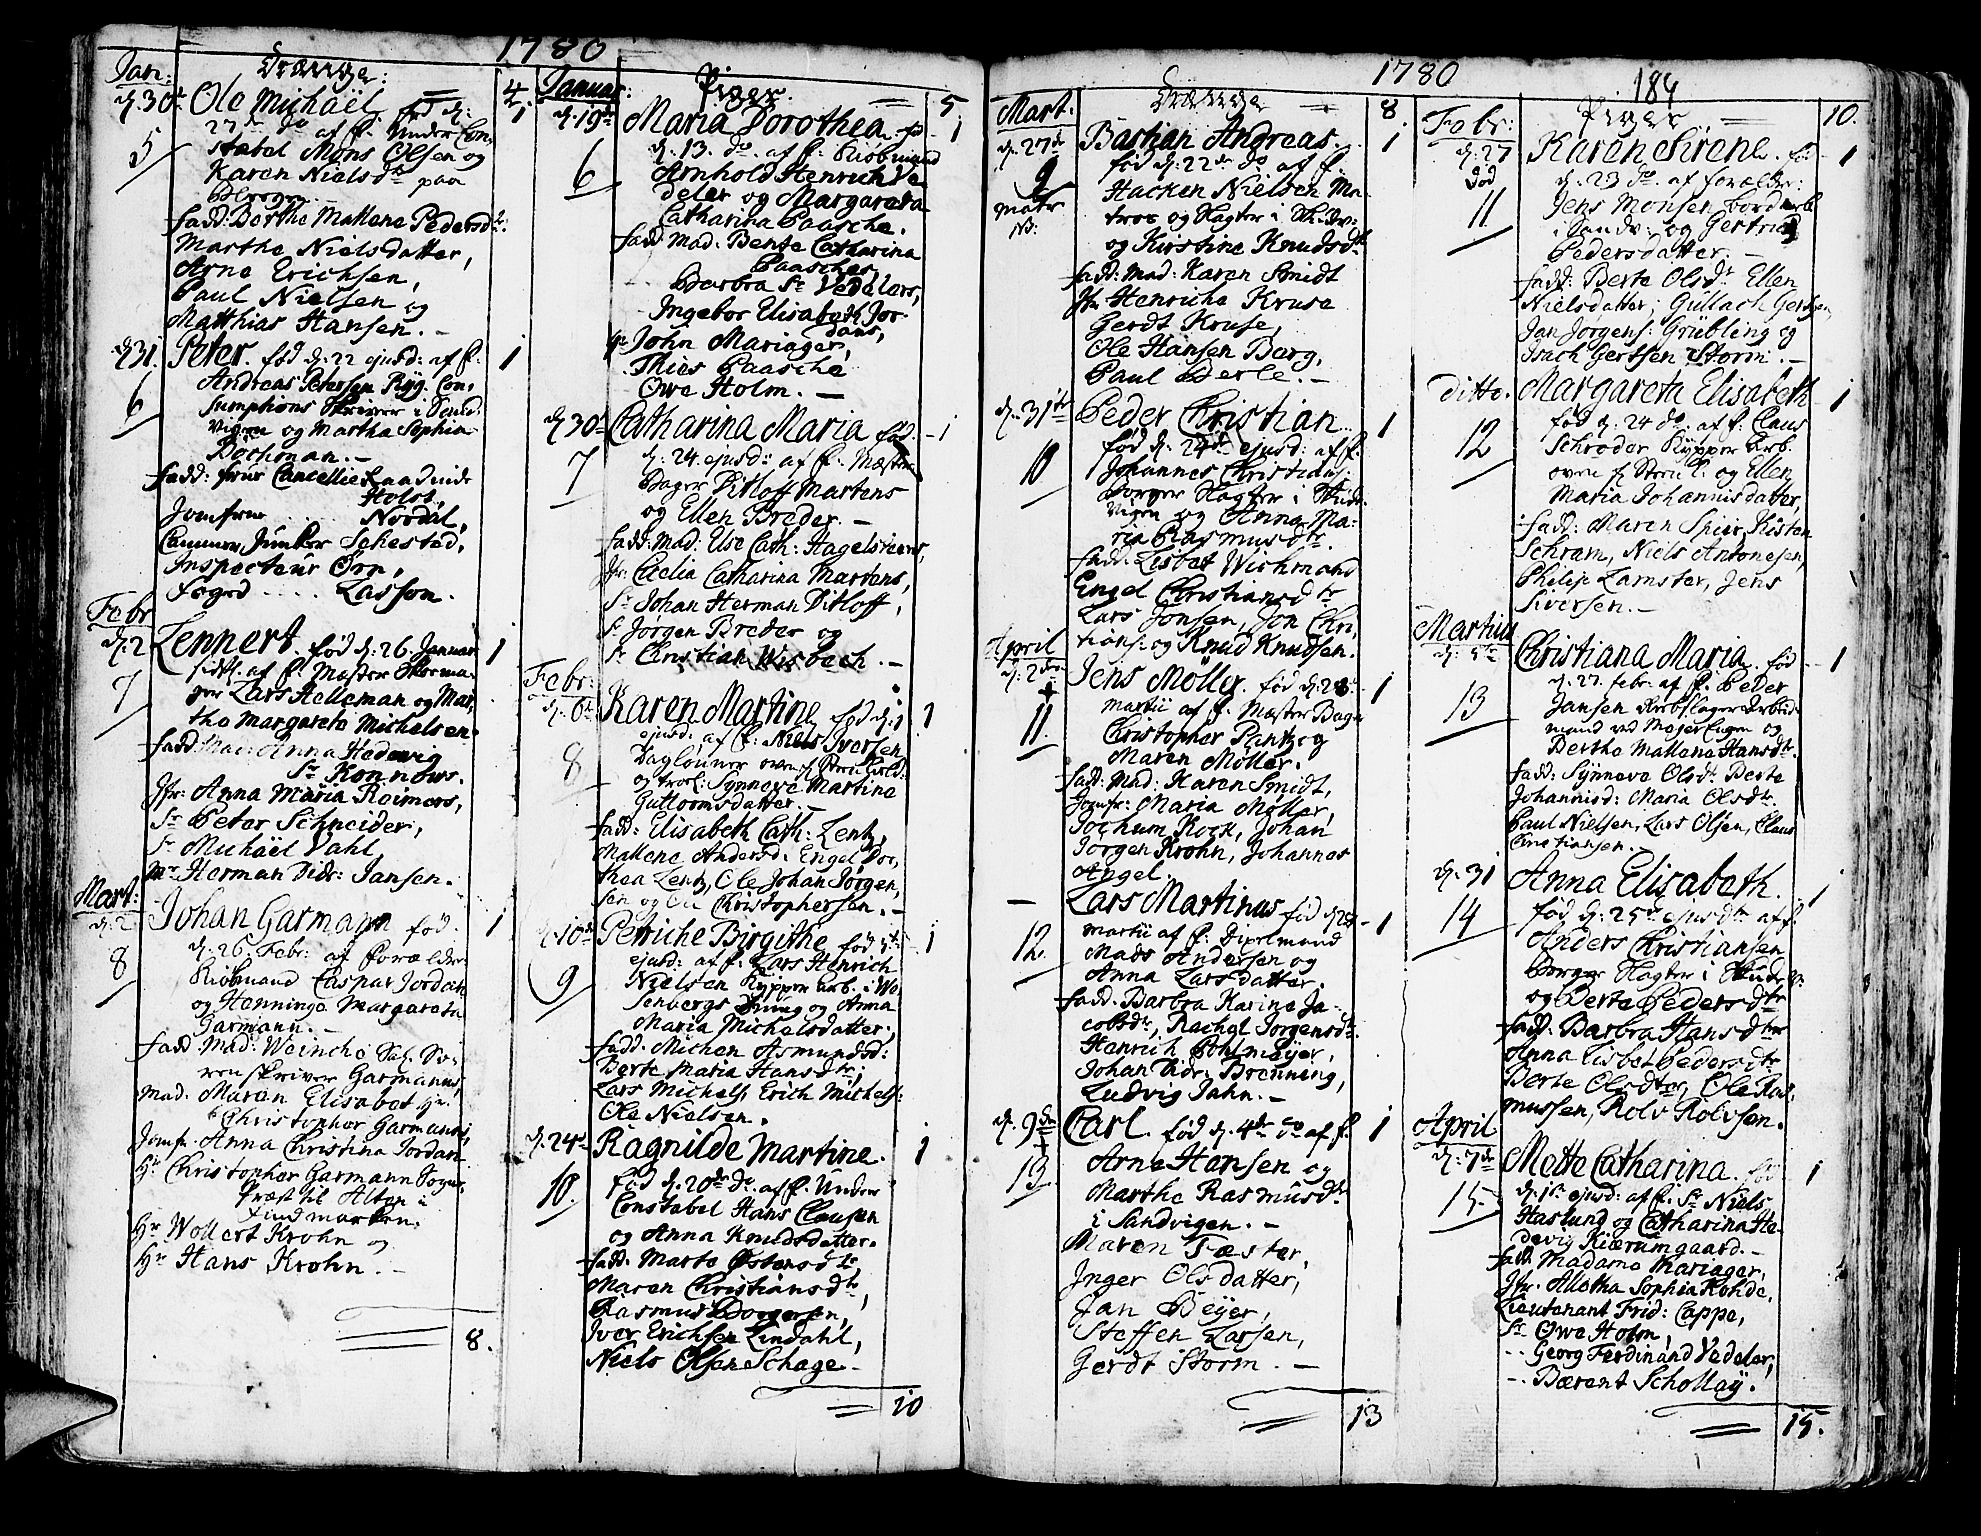 1780
Jan:
Drænge:
4
d. 30te Ole Michaël fød d:
5
27de do af f. Under Con,
stabel Mons Olsen og
Karen Nielsdtr paa
Bergen.
fadd: Berthe Mallene Pedersdtr:
Marthe Nielsdatter,
Arne Erichsen,
Paul Nielsen og
Matthias Hansen. –
1
d 31. Peter. fød d: 22 ejusd: af f. 1
6
Andreas Petersen Ryg. Con,
sumptions Skriver i Sand
vigen og Martha Sophia
Böchman. –
fadd: frue Cancellie Raadinde
Holst,
Jomfrue ..... Nordal,
Cammer Junker Sehested,
Inspecteur Örn,
Foged ..... Lasson.
Febr
d: 2 Lennert. fød d: 26. Januar 1
7
sidstl. af f. Mester Skoma-
ger Lars Helleman og Mar,
tha Margareta Michelsen.
fadd Mad: Anna Hedevig
Sr Konnows.
Jfr: Anna Maria Reimers,
Sr Peter Schneider,
Sr Michaël Vahl
Mr Herman Didr: Jansen.
Mart:
d. 2 Johan Garmann fød. 1
8
d: 26. Febr: af Forældre
Kiøbmand Caspar Jordan
og Henninge Margareta
Garmann. –
fadd Mad: Weinche Sal. So-
renskriver Garmanns,
Mad. Maren Elisabet Hr.
Christopher Garmanns,
Jomfr. Anna Christina Jordan
Hr Christopher Garmann Sogne,
Præst til Alten i
Findmarken,
Hr Wollert Krohn og
Hr Hans Krohn. –
8.
Januar:
Piger.
5
d. 19de Maria Dorothea fød 1
6
d. 13. do af f. Kiøbmand
Arnhold Henrich Ve
deler og Margareta
Catharina Paasche.
fadd. Mad. Bente Catharina
Paasches,
– – Barbra Sr Vedelers,
– Ingebor Elisabeth Jor-
dans,
Sr John Mariager,
Thies Paasche
Owe Holm. –
d. 30te Catharina Maria fød. 1
7
d. 24 ejusd: af f. Mester
Bager Ditloff Martens
og Ellen Breder. –
fadd: Mad: Else Cath: Hagelsteens,
Jfr: Cecilia Catharina Martens,
Sr Johan Herman Ditloff,
Sr Jørgen Breder og
Sr Christian Wisbach. –
Febr:
d. 6te Karen Martine fød d. 1 1
8
ejusd: af f: Niels Iversen
Daglønner oven f Steen
og troel: Synneve Martine
Guttormsdatter. –
fadd: Elisabeth Cath: Lentz,
Mallene Andersd: Engel Dor,
thea Lentz, Ole Johan Jörgen,
sen og Ole Christophersen. –
d. 10de Petriche Birgithe fød d. 1
9
ejusd: af f. Lars Henrich
Nielsen Kypper Arb. i Wo
senbergs Smug og Anna
Maria Michelsdatter.
fadd. Michen Asmundsd:
Berte Maria Hansdtr:
Lars Michels, Erich Michels:
Ole Nielsen.
d. 24de Ragnilde Martine. 1
10.
fød d. 20de do: af f. Under
Constabel Hans Clausen
og Anna Knudsdatter.
fadd. Marte Östensdtr
Maren Christiansdtr,
Rasmus Borgersen,
Iver Erichsen Lindahl,
Niels Olsen Schage –
10
1780
184
Mart:
Drænge
8.
d. 27de Bastian Andreas. 1
9
fød d. 22de do af f.
Hacken Nielsen Ma-
tros og Hagter i Skidev:
og Kirstine Knudsdtr
fadd: Mad: Karen Smidt
Jfr Henricha Kruse
Gerdt Kruse,
Ole Hansen Berg,
Paul Berle. –
d. 31te Peder Christian. 1
10
fød d. 24de ejusd: af f.
Johannes Christians:
Borger Hagter i Skude
vigen og Anna Ma-
ria Rasmusdtr.
fadd. Lisbet Wichmand
Engel Christiansdtr
Lars Jonsen, Jon Chri,
tians: og Knud Knudsen.
April
d: 2den Jens Möller. fød d: 28 1
11.
Martii af f. Mester Bager
Christopher Pantz og
Maren Möller.
fadd: Mad: Karen Smidt,
Jomfr: Maria Möller,
Jochum Kock, Johan
Jörgen Krohn, Johannes
Angel.
– Lars Martinus fød d 1
12.
Martii af f. Dixelmand
Mads Andersen og
Anna Larsdatter.
fadd. Barbra Karine Ja-
cobsdtr, Rachel Jörgensdtr.
Henrich Pohlmeÿer,
Johan Didr: Brenning,
Ludvig Jahn. –
d. 9de Carl. fød d. 4de do af f. 1
13
Arne Hansen og
Marthe Rasmusdtr
i Sandvigen. –
Maren Fæster,
Inger Olsdatter,
Jan Beÿer,
Steffen Larsen,
Gerdt Storm. –
13
Febr:
Piger
10.
d. 27 Karen Sirene. fø 1
død
11
d. 23 do. af forældr:
Jens Monsen
i Sandv: og Gertrud
Pedersdatter. –
fadd: Berte Olsdtr Ellen
Nielsdatter; Gullach Gertsen
Jan Jörgens: Grübling og
Isach Gertsen Storm. –
ditto. Margareta Elisabeth 1
12
fød d. 24 do. af f. Claus
Schröder Kypper Arb.
oven f. Steen l. og Ellen
Maria Johannisdatter,
fadd: Maren Spier, Kisten
Schram, Niels Antonesen,
Philip Lamster, Jens
Siversen. –
Martius
d. 5te Christiana Maria. fød 1
13
d. 27. febr. af f. Peder
Jansen Rebslager Arbeid
mand ved Mejer Engen og
Berthe Mallena Hansdtr.
fadd: Synneve Olsdtr. Berte
Johannisd: Maria Olsdtr.
Paul Nielsen, Lars Olsen, Claus
Christiansen. –
d. 31 Anna Elisabeth. 1
14
fød d: 25de ejusdtr af f.
Anders Christiansen
Borger Hagter i Skude v:
og Berte Pedersdtr
fadd. Barbra Hansdtr
Anna Lisbet Pedersdtr
Berte Olsdtr, Ole Ras
mussen, Rolv Rolvsen.
April
d. 7de Mette Catharina. fød 1
15.
d. 1te ejusd: af f. Sr Niels
Haslund og Catharina He-
devig Kierumgaard. –
fadd. Madame Mariager,
Jfr. Alletha Sophia Rohde,
Lieutenant Frid: Cappe,
Sr Owe Holm,
– – Georg Ferdinand Vedeler,
– – Bærent Schollaÿ.
15.